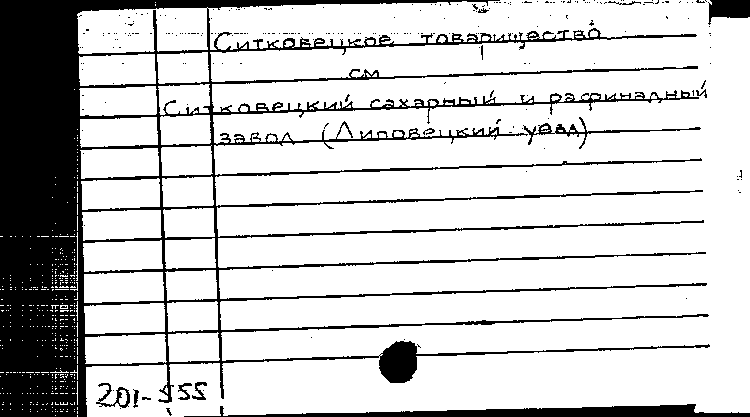 Ситковецкое товарищество
см
Ситковецкий сахарный и рафинадный
завод (Липовецкий уезд)
201-555